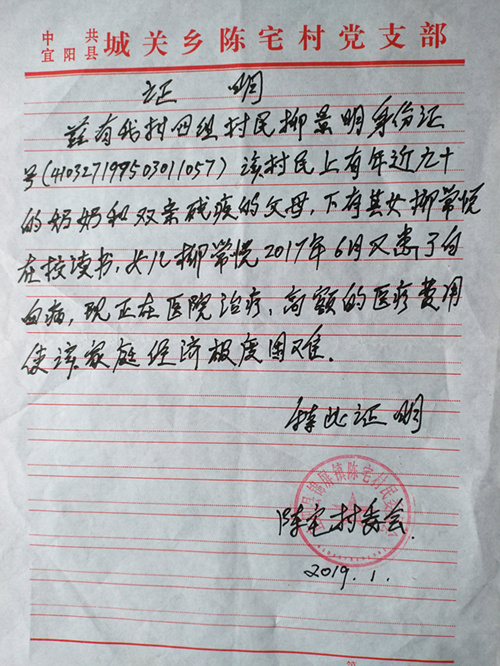 中共宜阳县城关乡陈宅村党支部
证 明
兹有我村四组村民柳景明身份证
号(410327197503011057)该村民上有年近九十
的奶奶和双亲残疾的父母，下有其女柳常悦
在校读书，女儿柳常悦2017年6月又患了白
血病，现正在医院治疗，高额的医疗费用
使该家庭经济极度困难．
特此证明
陈宅村委会
2019.1.